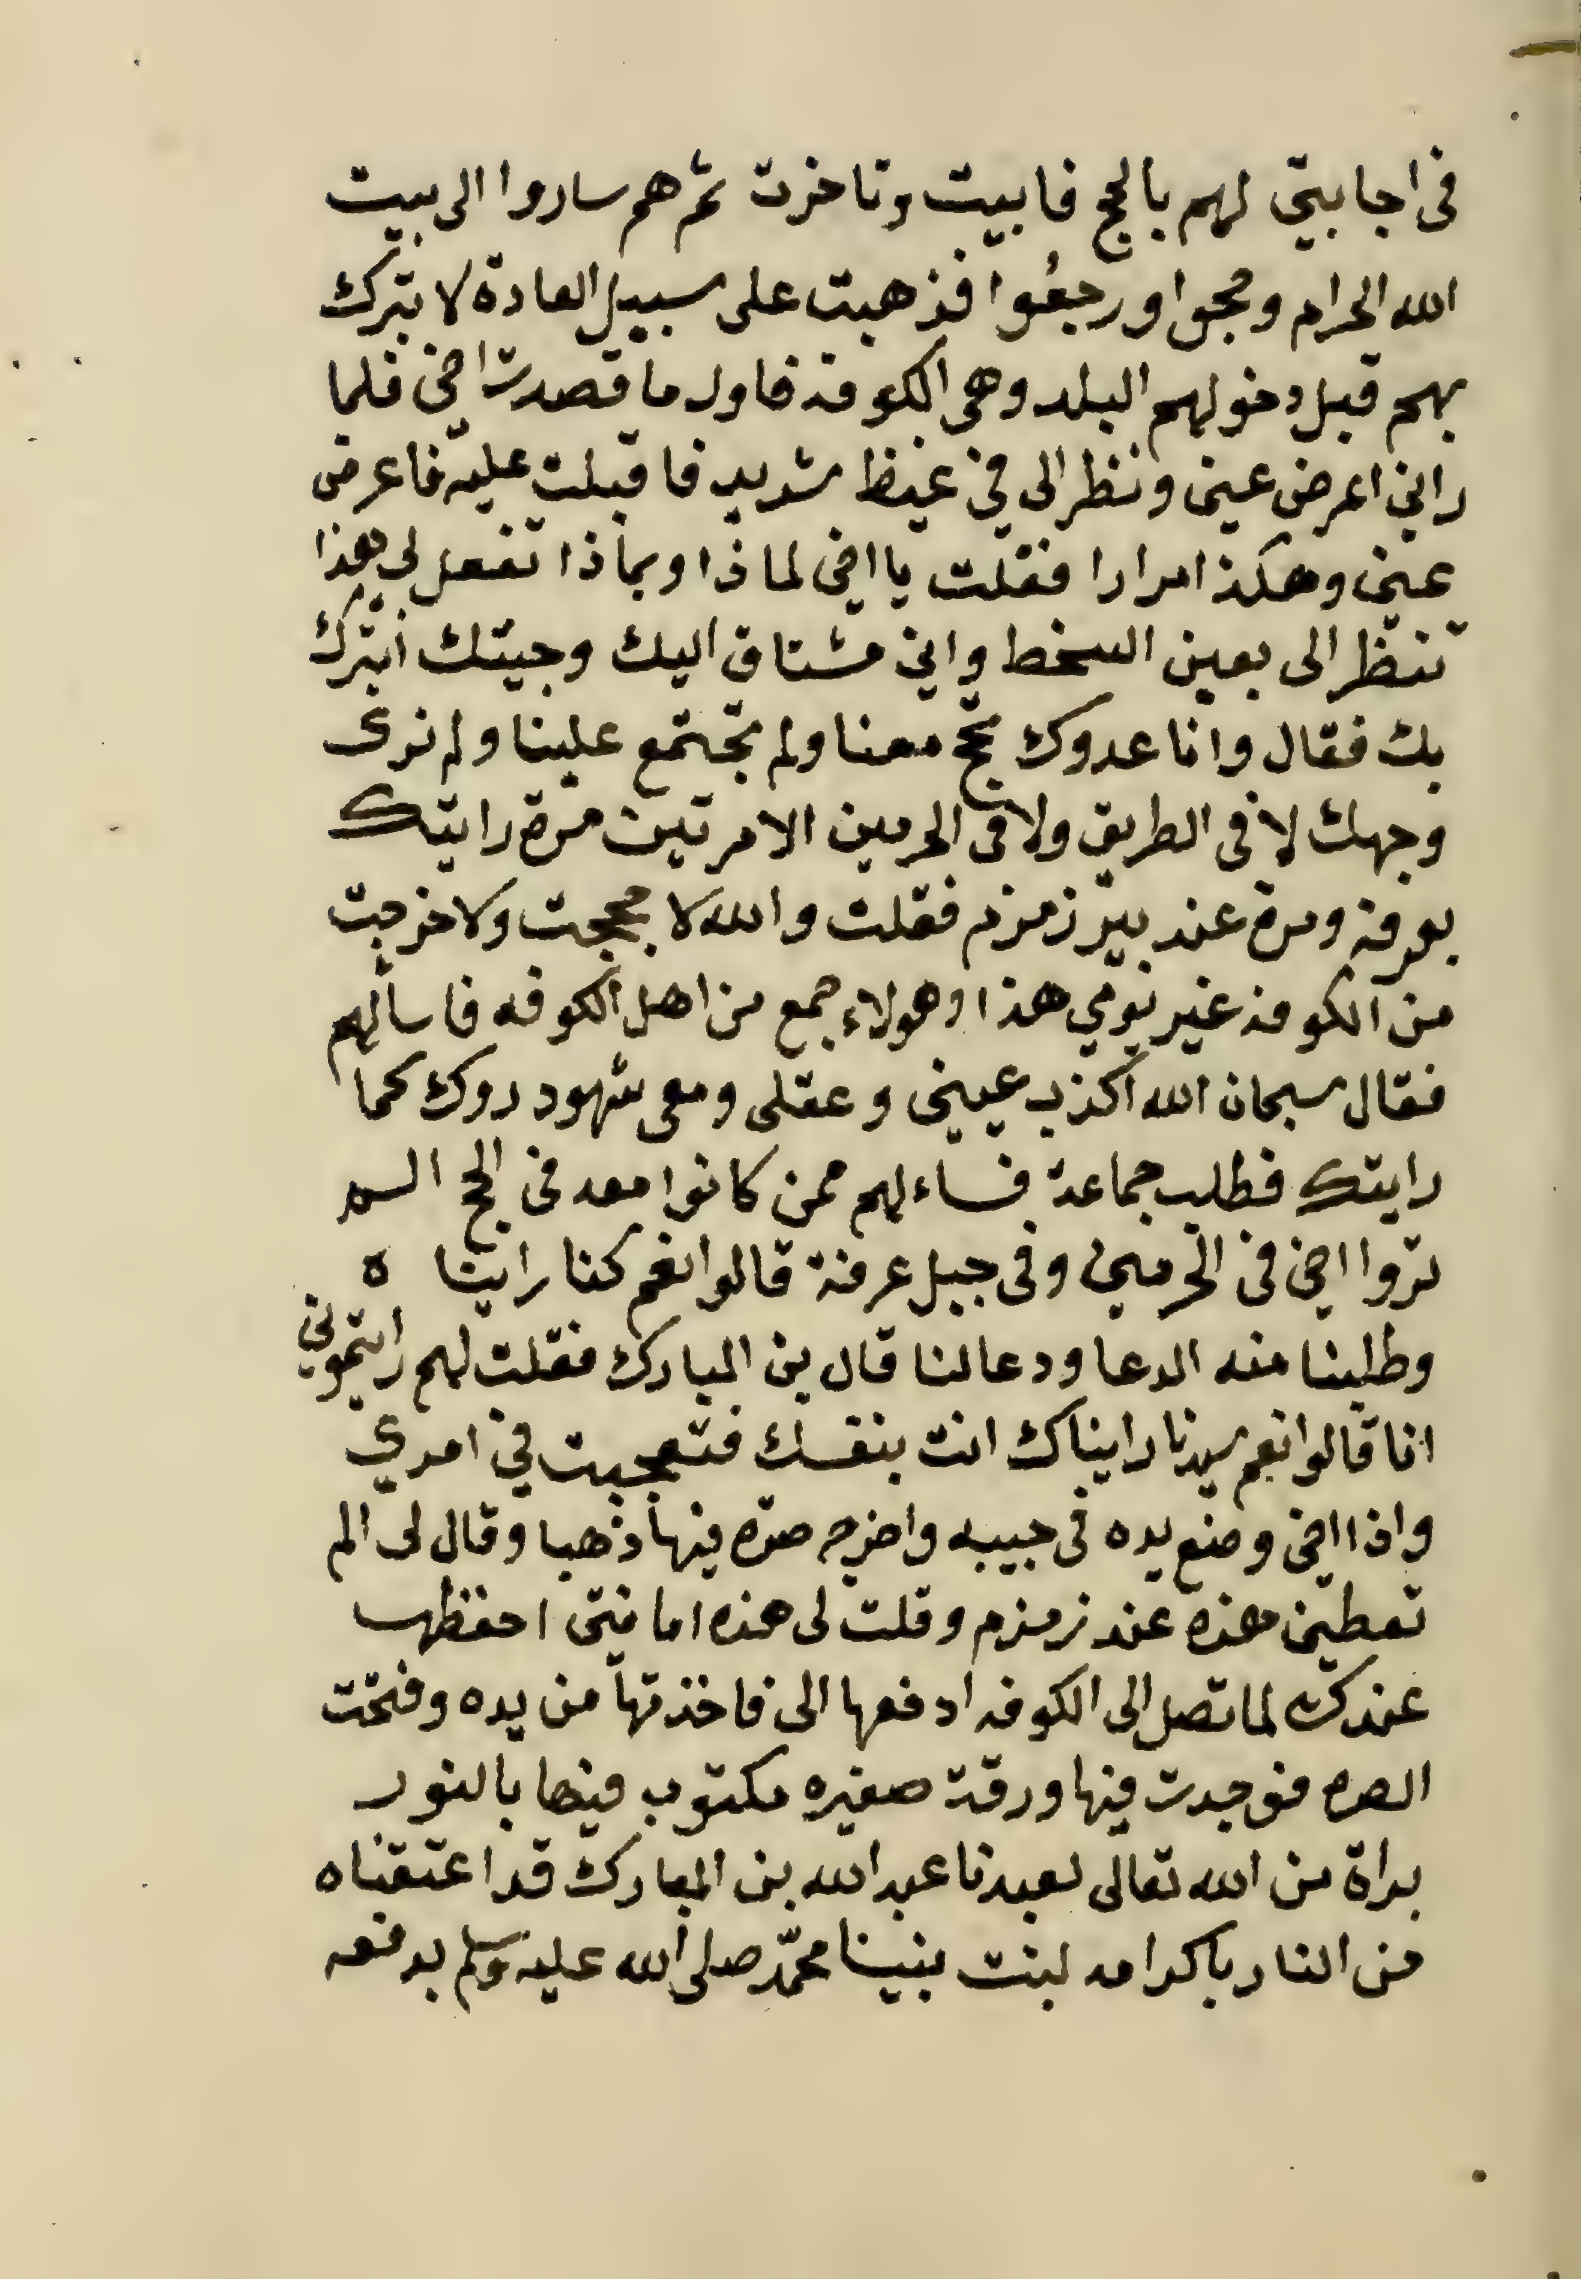 فى اجابتي لهم بالحج فابيت وتاخرت ثم هم ساروا الى بيت
الله الحرام وحجوا ورجعُوا فذهبت على سبيل العادة لاتبرك
بهم قبل دخولهم البلد وهى الكوفه فاول ما قصدت اخى فلما
رانى اعرض عنى ونظر الى في غيظ شديد فاقبلت عليه فاعرض
عنى وهكذا مرارا فقلت يا اخى لماذا وبماذا تفعل لى هذا
تنظر الى بعين السخط وانى مشتاق اليك وجيتك اتبرك
بك فقال وانا عدوك تحج معنا ولم تجتمع علينا ولم نرى
وجهك لا فى الطريق ولا فى الحرمين الا مرتين مرة رايتك
بعرفه ومرة عند بير زمزم فقلت والله لا حججت ولا خرجت
من الكوفه غير يومي هذا وهولاء جمع من اهل الكوفه فاسألهم
فقال سبحان الله اكذب عينى وعقلى ومعى شهود روك كما
رايتك فطلب جماعة فساءلهم ممن كانوا معه فى الحج الم
تروا اخى فى الحرمين وفى جبل عرفة قالوا نعم كنا راينا ه
وطلبنا منه الدعا ودعا لنا قال بن المبارك فقلت لهم رايتموني
انا قالوا نعم سيدنا رايناك انت بنفسك فتعجبت في امري
واذا اخى وضع يده فى جيبه واخرج صره فيها ذهبا وقال لى الم
تعطينى هذه عند زمزم وقلت لى هذه امانتى احفظها
عندك لما تصل الى الكوفه ادفعها الى فاخذتها من يده وفتحت
الصره فوجدت فيها ورقة صغيره مكتوب فيها بالنور
براة من الله تعالى لعبدنا عبد الله بن المبارك قد اعتقناه
من النار باكرامه لبنت نبينا محمّد صلى الله عليه وسلم بدفعه